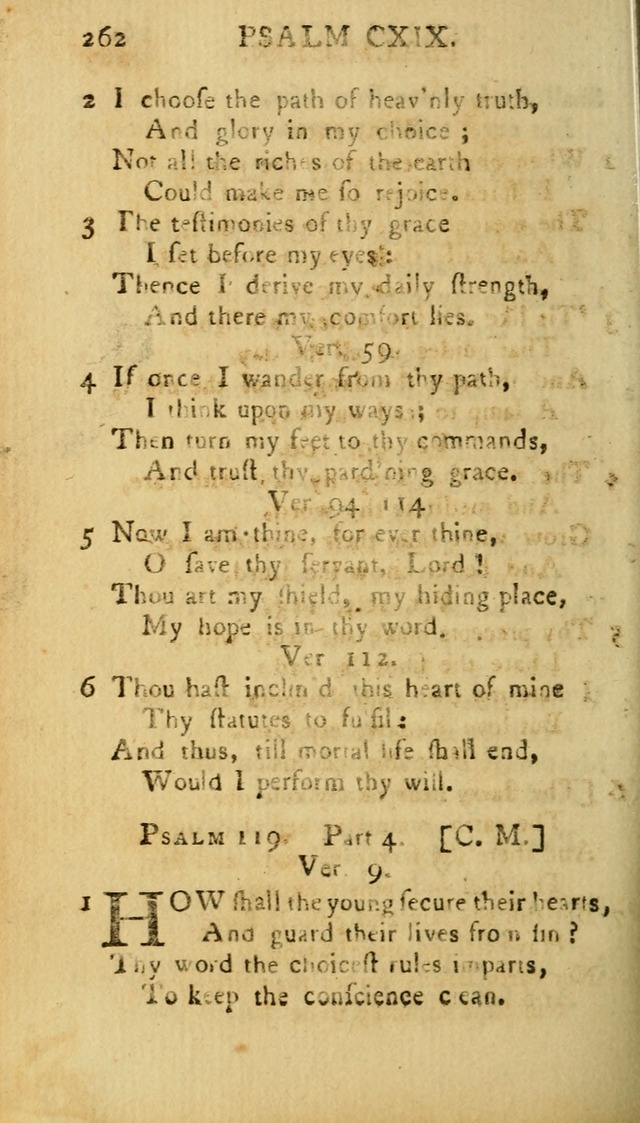 262 PSALM CXIX.
2 I chooſe the path of heav'nly truth,
And glory in my choice ;
Not all the riches of the earth
Could make me ſo rejoice.
3 The teſtimonies of thy grace
I ſet before my eyes:
Thence I derive my daily ſtrength,
And there my comfort lies.
Ver. 59.
4 If once I wander from thy path,
I think upon my ways ;
Then turn my feet to thy commands,
And truſt thy pard'ning grace.
Ver 94 114
5 Now I am thine, for ever thine,
O ſave thy ſervant, Lord !
Thou art my ſhield, my hiding place,
My hope is in thy word.
Ver 112.
6 Thou haſt inclin'd this heart of mine
Thy ſtatutes to fulfil:
And thus, till mortal life ſhall end,
Would I perform thy will.
PSALM 119. Part 4. [C. M.]
Ver. 9.
1 HOW ſhall the young ſecure their hearts,
And guard their lives from ſin ?
Thy word the choiceſt rules imparts,
To keep the conſcience clean.